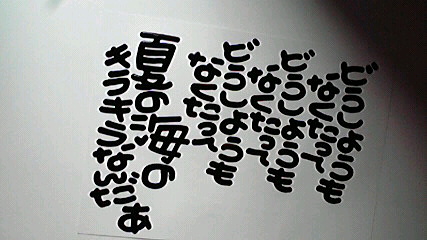 どうしようも
なくたって
どうしようも
なくたって
どうしようも
なくたって
夏の海の
キラキラなん